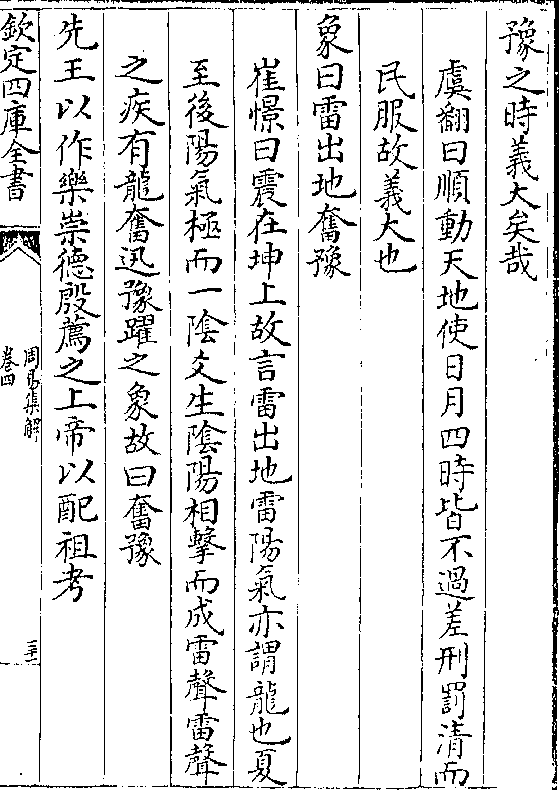 豫之時義大矣哉
虞翻曰順動天地使日月四時皆不過差刑罰清而
民服故義大也
象曰雷出地奮豫
崔憬曰震在坤上故言雷出地雷陽氣亦謂龍也夏
至後陽氣極而一隂爻生隂陽相擊而成雷聲雷聲
之疾有龍奮迅豫躍之象故曰奮豫
先王以作樂崇德殷薦之上帝以配祖考
欽定四庫全書
周易集解
卷四